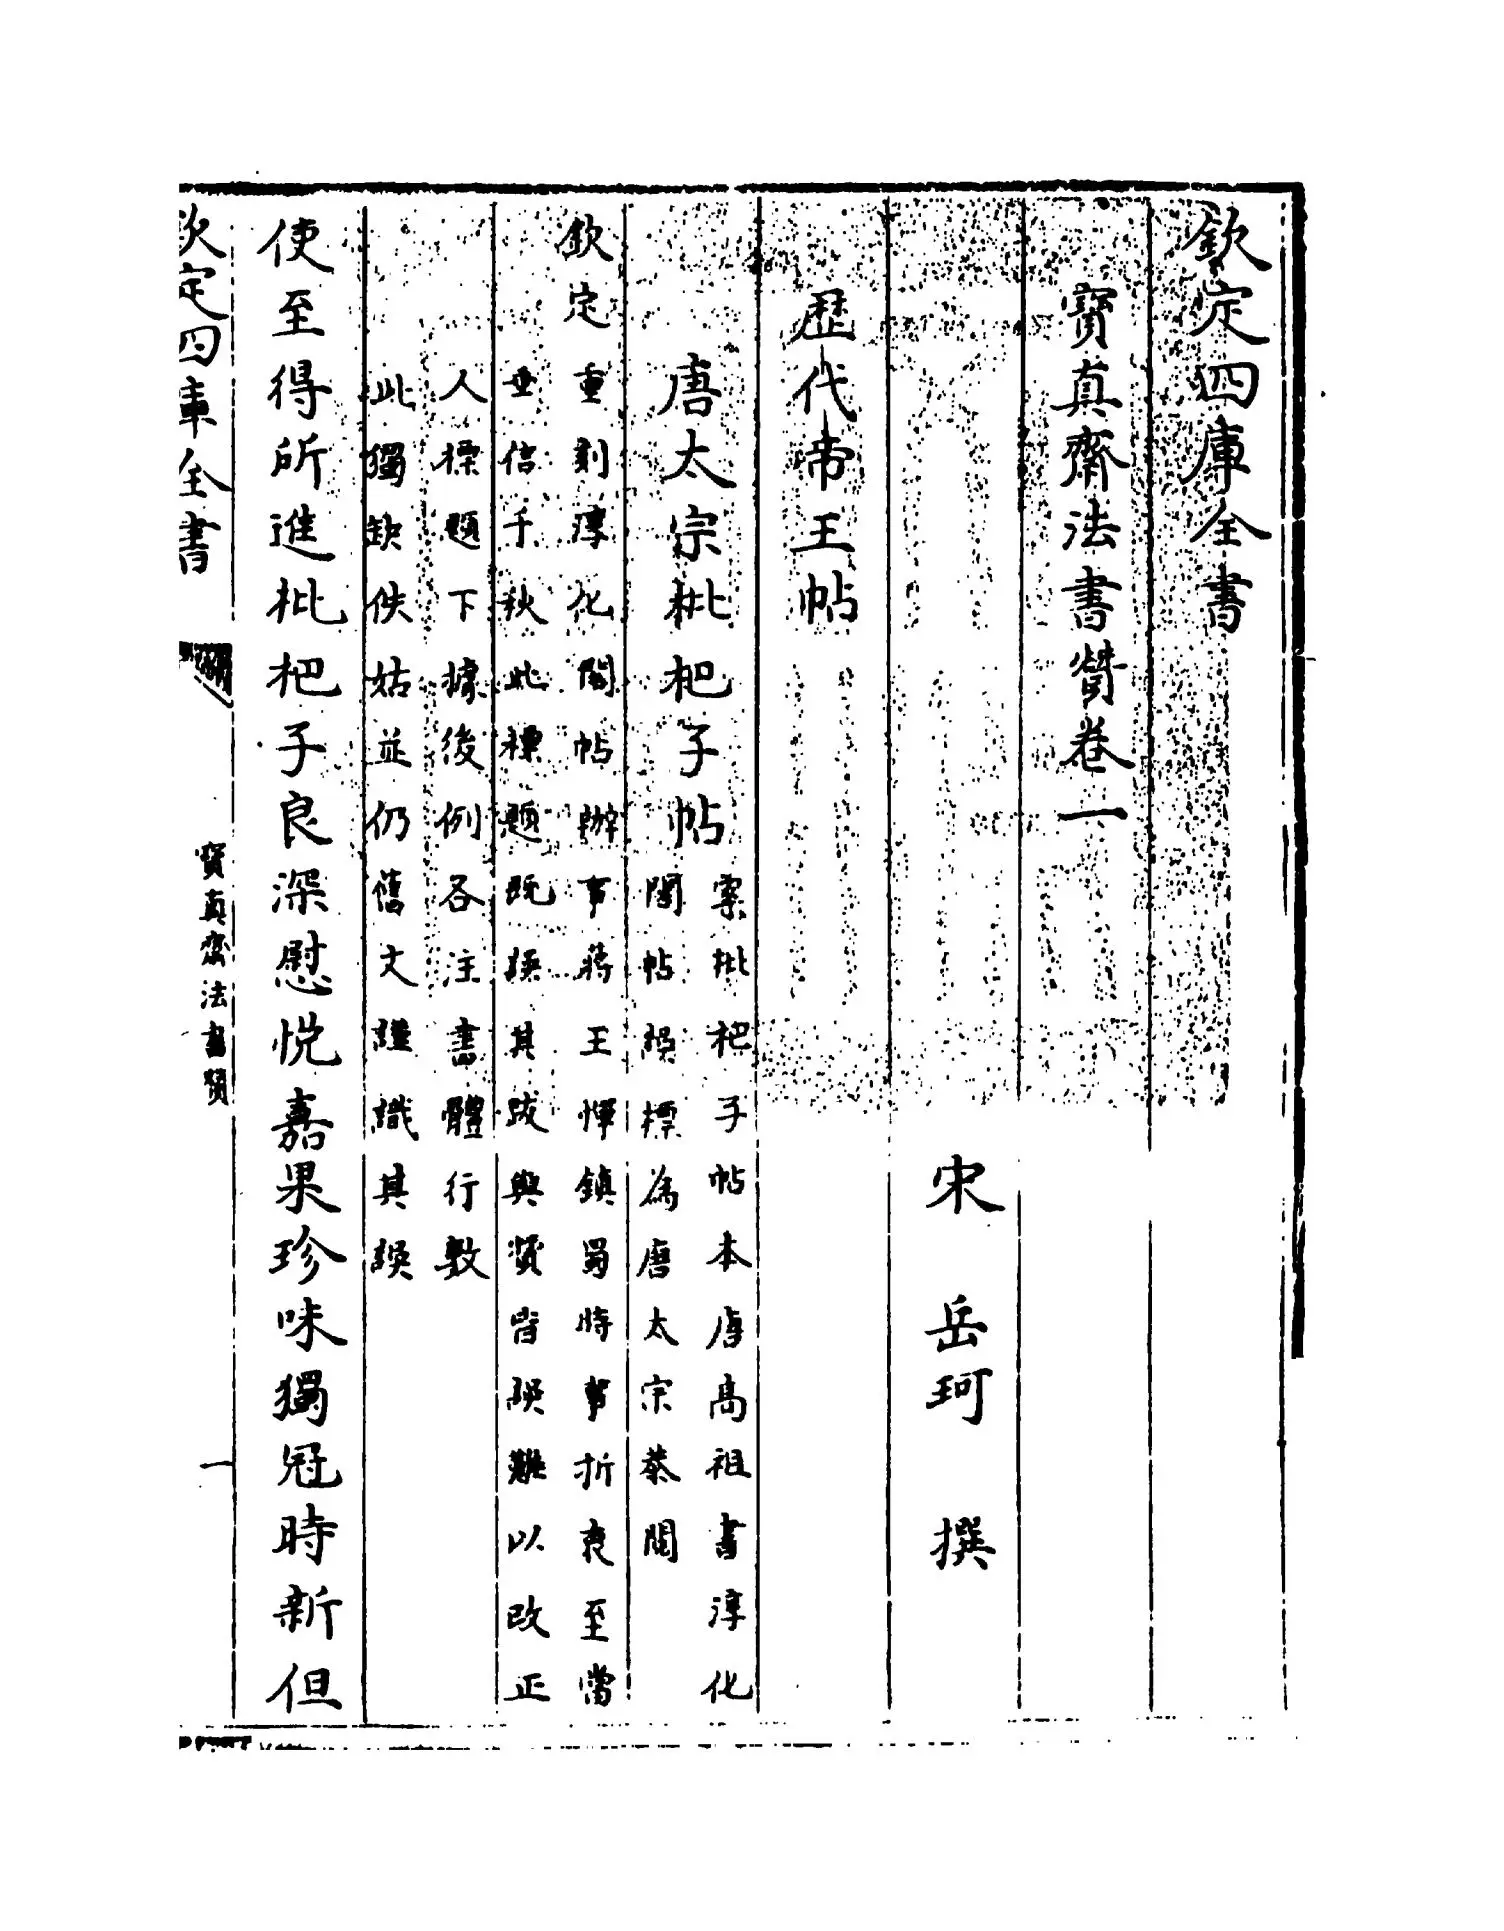 欽定四庫全書
寶真齋法書贊卷一
宋 岳珂 撰
歴代帝王帖
唐太宗枇杷子帖
案枇杷子帖本唐高祖書淳化
閣帖誤標為唐太宗恭閲
欽定重刻淳化閣帖辦事蔣王惲鎮蜀時事折衷至當
垂信千秋此標題既誤其跋與贊皆誤難以改正
人標題下據後例各注書體行數
此獨缺佚姑並仍舊文謹識其誤
使至得所進枇杷子良深慰悅嘉果珍味獨冠時新但
欽定四庫全書
寶真齋法書贊
一